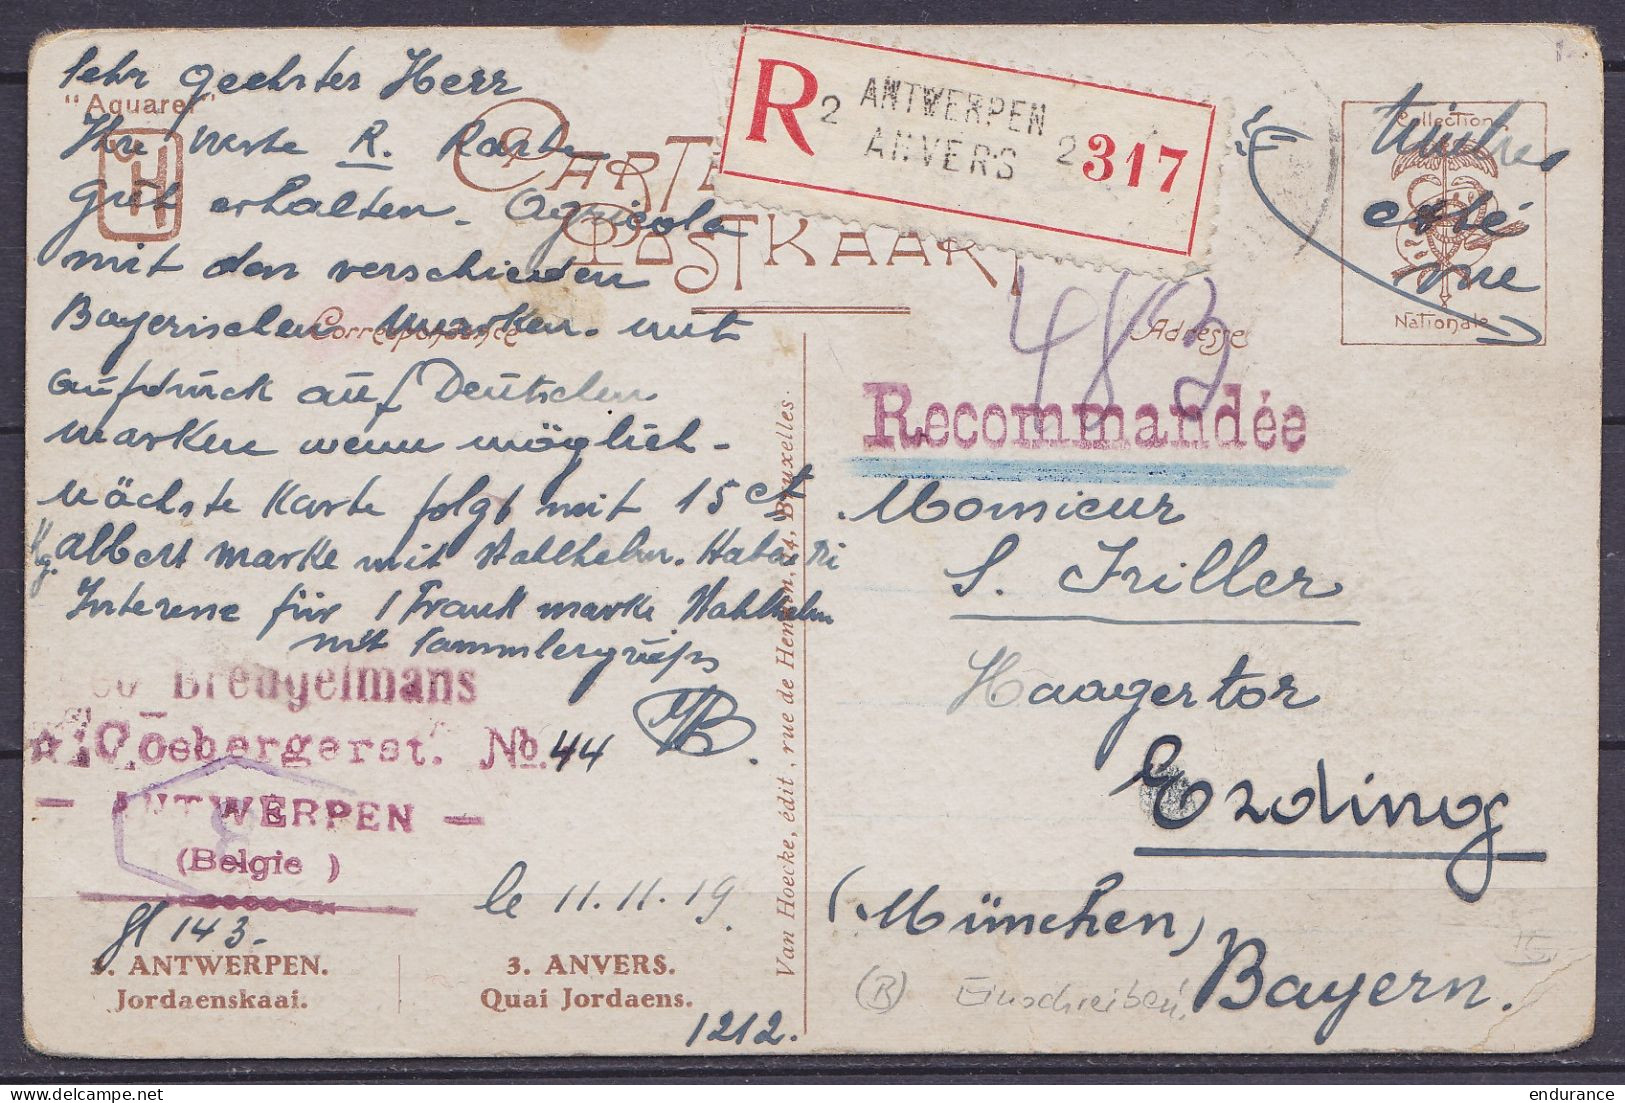 Sehr geehrter Herr
"Aquarel"
Ihre werte R. Karte
gut erhalten - Agricola
mit den verschieden
Bayerischen Marken. mit
aufdruck auf Deutschen
marken wenn möglich -
nächste Karte folgt mit 15 ct
Kg. Albert marke mit Stahlhelm.
Interesse für 1 Frank marke Stahlhelm
mit Sammlergruss
CARTE POSTALE
POSTKAART
Correspondance
Adresse
R 2 ANTWERPEN
ANVERS 2 317
timbre
côté
vue
Collection
Nationale
Recommandée
Monsieur
S. Friller
Haagertor
Erding
(München)
Bayern.
(R) Einschreiben.
Brengelmans
Coebergerst. No. 44
- ANTWERPEN -
(Belgie )
le 11.11.19
143.
3. ANTWERPEN.
Jordaenskaai.
3. ANVERS.
Quai Jordaens.
1212.
Van Hoecke, édit, rue de Hennin, 14, Bruxelles.
endurance